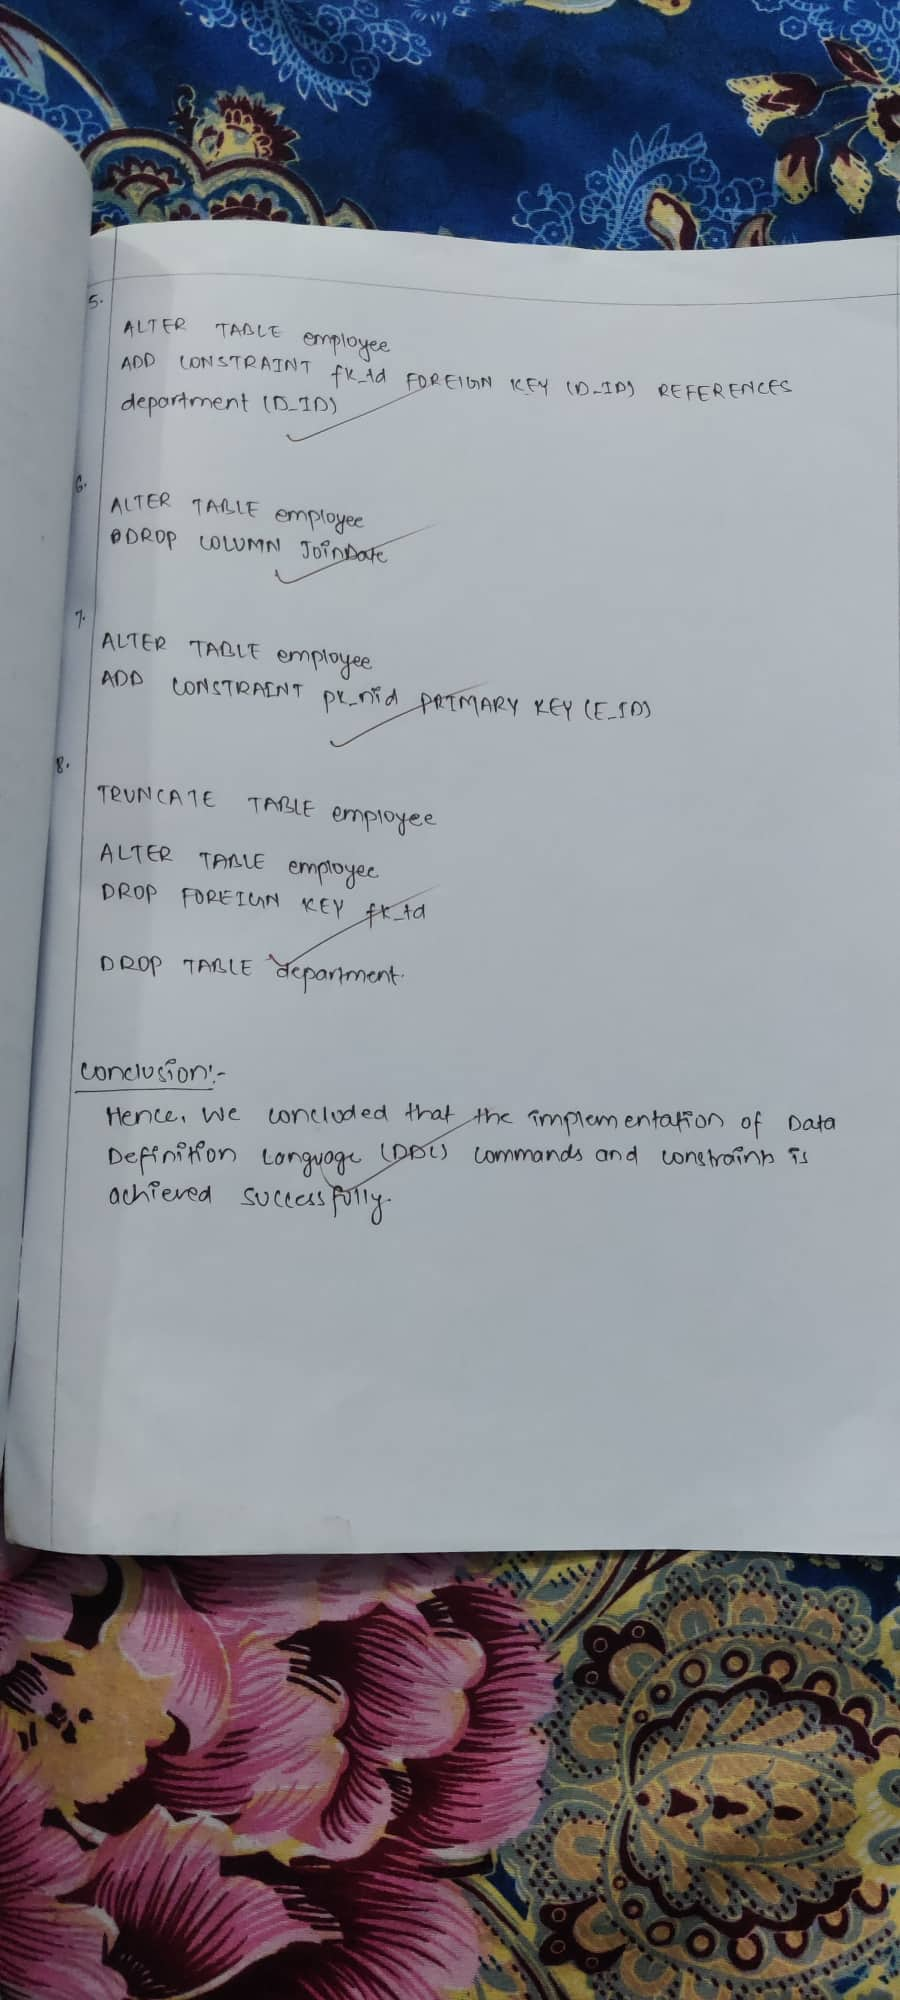 5.
ALTER TABLE employee
ADD CONSTRAINT fk_td FOREIGN KEY (D_ID) REFERENCES
department (D_ID)
6.
ALTER TABLE employee
DROP COLUMN JoinDate
7.
ALTER TABLE employee
ADD CONSTRAINT pk_nid PRIMARY KEY (E_ID)
8.
TRUNCATE TABLE employee
ALTER TABLE employee
DROP FOREIGN KEY fk_td
DROP TABLE department.
Conclusion:-
Hence, We concluded that the implementation of Data
Definition Language (DDL) commands and constraints is
achieved successfully.